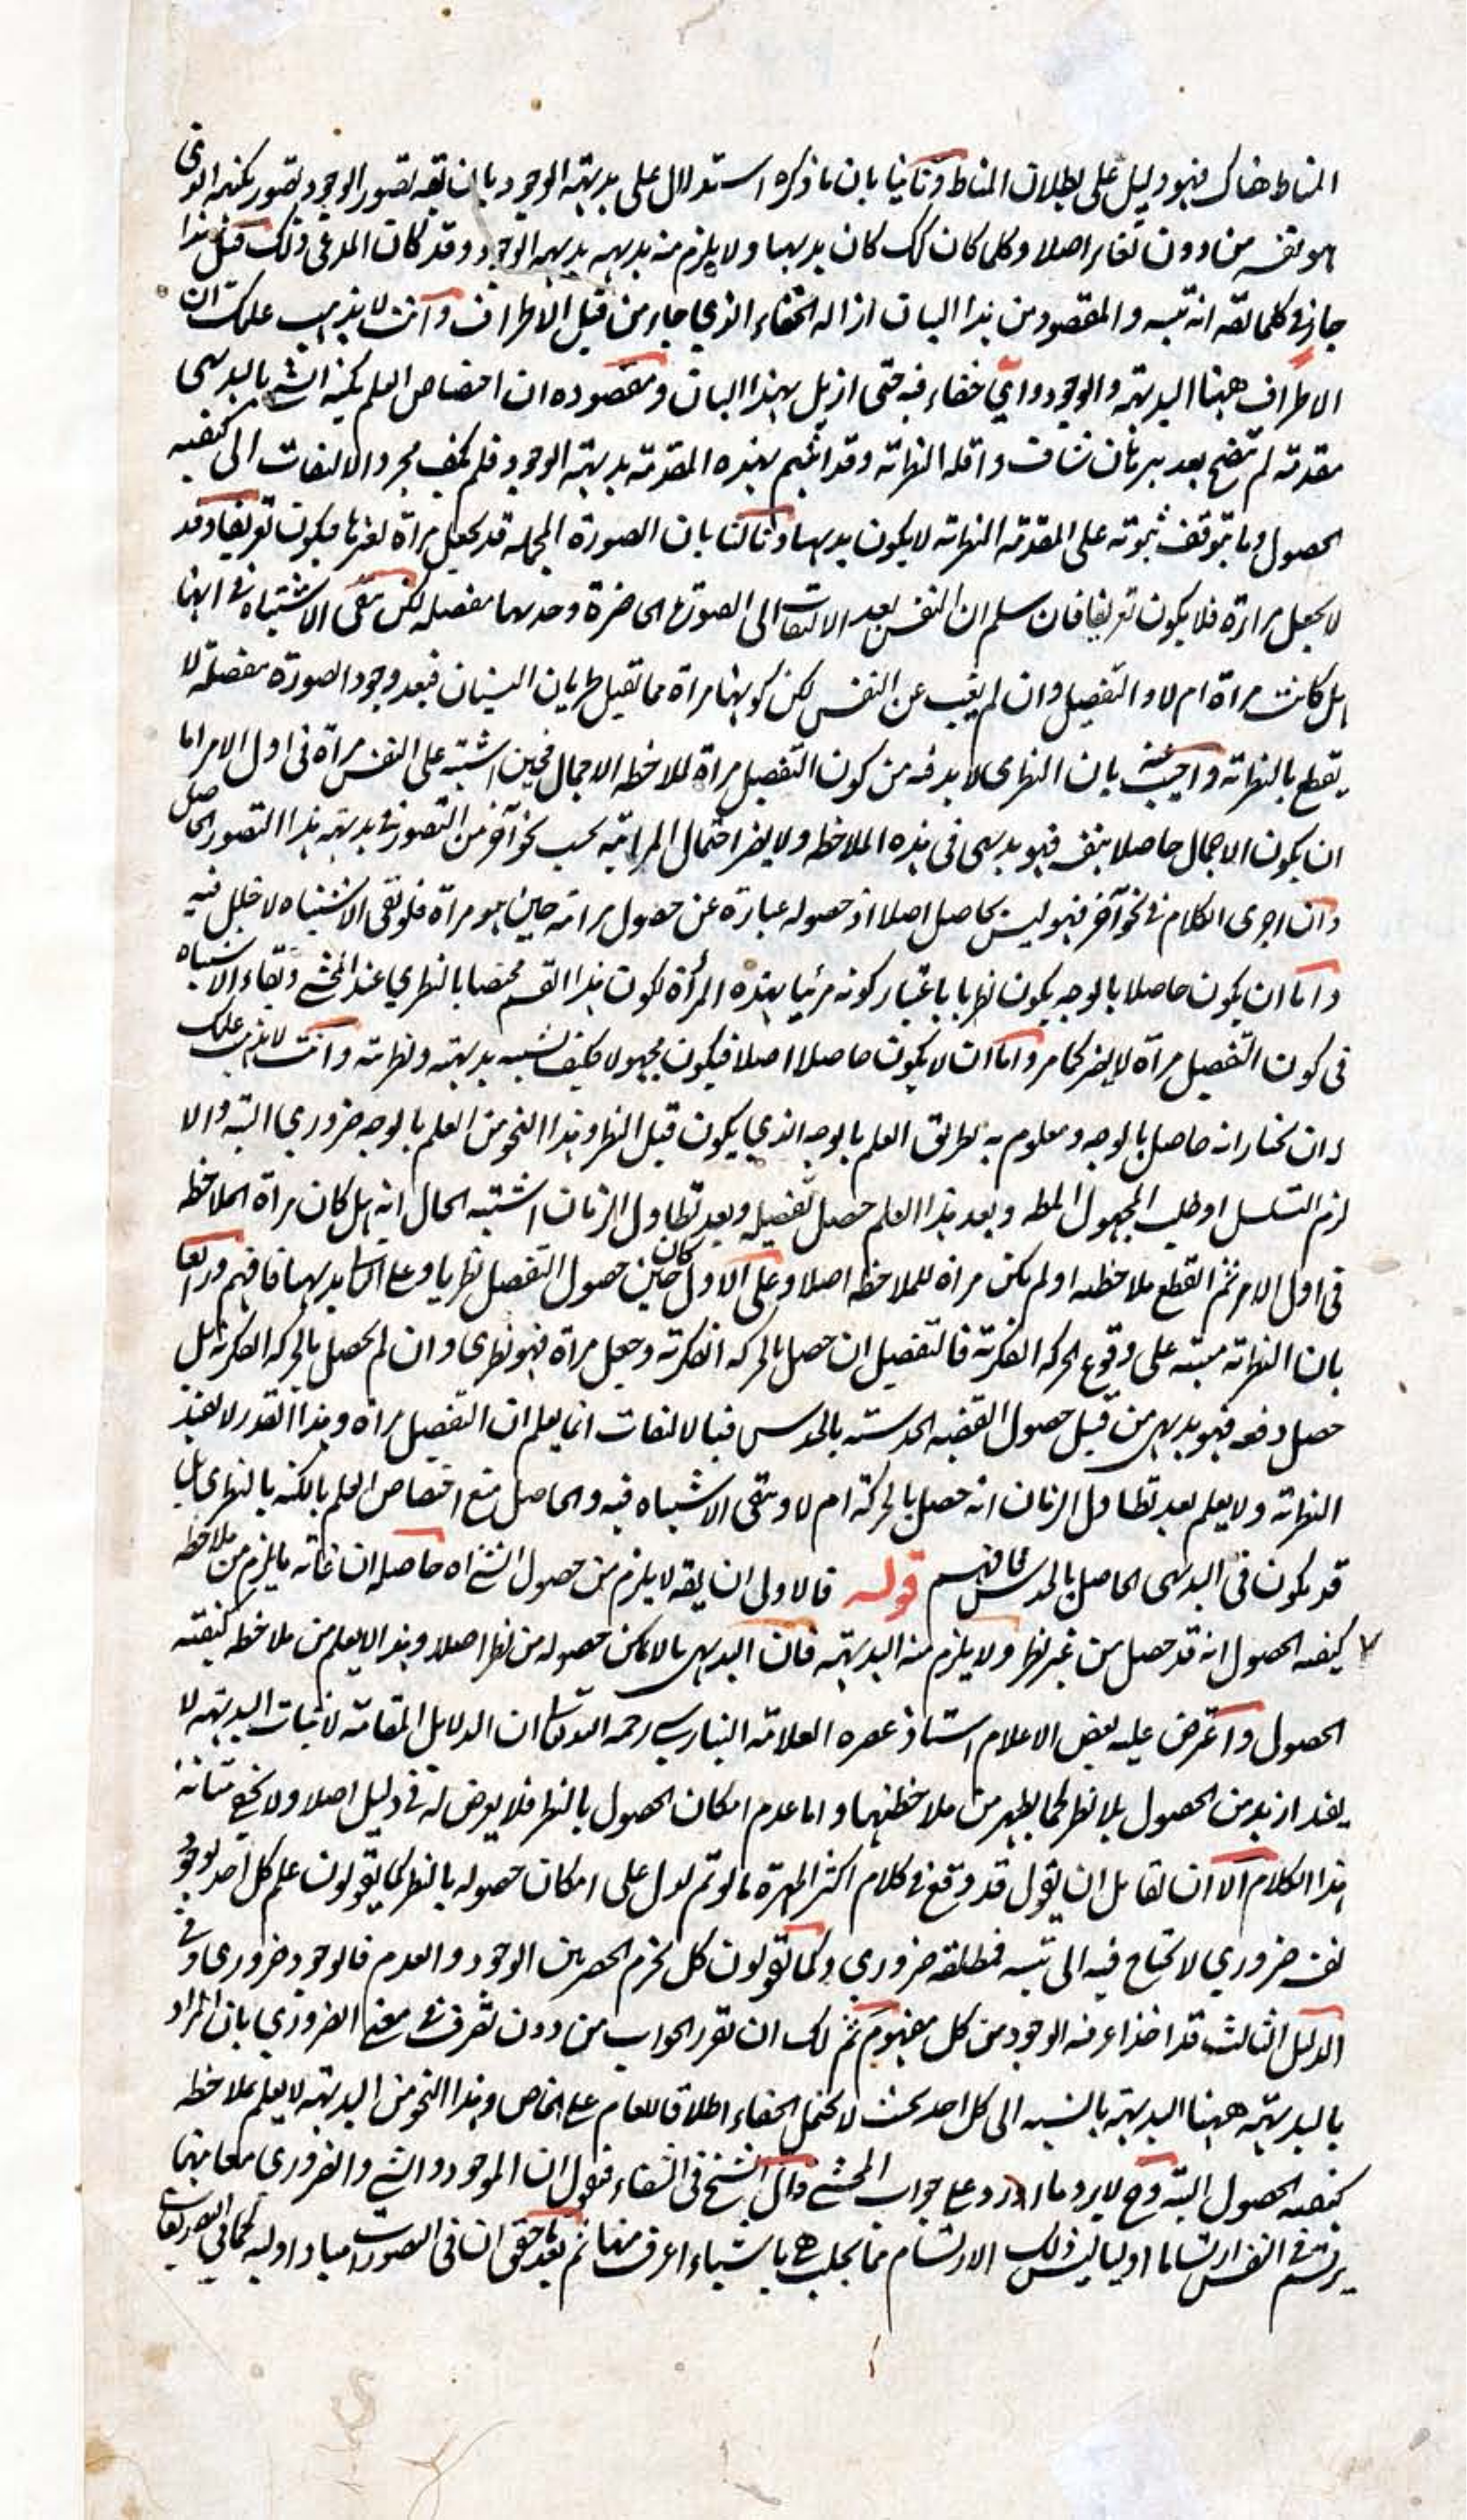 المناط هناك فهو دليل على بطلان المناط وثانيا بان ما ذكره استدلال على بديهة الوجود بان يقه تصور الوجود تصور بكنهه الذى
هو نفسه من دون تغاير اصلا وكلما كان كك كان بديهيا ولا يلزم منه بديهه بديهة الوجود وقد كان المدعى ذلك قيل هذا
جاز فى كلما يقه انه تنبيه والمقصود من هذا البيان ازاله الخفاء الذي جاء من قبل الاطراف وانت لا يذهب عليك ان
الاطراف ههنا البديهة والوجود واي خفاء فيه حتى ازيل بهذا البيان ومقصوده ان اختصاص العلم بكنه الشئ بالبديهى
مقدمة لم تتضح بعد ببرهان شاف واقله النظرية وقد اثبتم بهذه المقدمة بديهة الوجود فلم يكف مجرد الالتفات الى كيفيه
الحصول وما يتوقف ثبوته على المقدمة النظرية لا يكون بديهيا وثالثا بان الصورة المجمله قد يجعل مرآة لغيرها فيكون تعريفا وقد
لا يجعل مراءة فلا يكون تعريفا فان سلم ان النفس بعد الالتفات الى الصورة الحاضرة وجدتها مفصله لكن بقى الاشتباه فى انها
هل كانت مراة ام لا والتفصيل وان لم يغيب عن النفس لكن كونها مراة مما تقبل طريان النسيان فبعد وجود الصورة مفصلة لا
يقطع بالنظرية واجيب عنه بان النظرى لا بد فيه من كون التفصيل مراة لملاحظه الاجمال فحين اشتبه على النفس مرآة فى اول الامر اما
ان يكون الاجمال حاصلا بنفسه فهو بديهى فى هذه الملاحظه ولا يضر احتمال المرآتيه بحسب نحو آخر من التصور فى بديهة هذا التصور الحاصل
وان اجرى الكلام فى نحو آخر فهو ليس بحاصل اصلا اذ حصوله عبارة عن حصول مرآته حين هو مرآة فلو بقى الاشتباه لا خلل فيه
واما ان يكون حاصلا بالوجه يكون نظريا باعتبار كونه مرئيا بهذه المرأة لكون هذا القسم مختصا بالنظري عند المحشى وبقاء الاشتباه
فى كون التفصيل مرآة لا يضر كما مر واما ان لا يكون حاصلا اصلا فيكون مجهولا فكيف يشتبه بديهته ونظريته وانت لا يذهب عليك
ان نختار انه حاصل بالوجه ومعلوم به بطريق العلم بالوجه الذي يكون قبل النظر وهذا النحو من العلم بالوجه ضروري البتة والا
لزم التسلسل او طلب المجهول المطه وبعد هذا العلم حصل تفصيله وبعد تطاول الزمان اشتبه الحال انه هل كان مرآة الملاحظه
فى اول الامر ثم انقطع ملاحظته او لم يكن مراة للملاحظه اصلا وعلى الاول حين كان حصول التفصيل نظريا وعلى الثانى بديهيا فافهم ورابعا
بان النظرية مبنية على وقوع الحركه الفكرية فالتفصيل ان حصل بالحركه الفكرية وجعل مراة فهو نظرى وان لم يحصل بالحركه الفكرية بل
حصل دفعه فهو بديهي من قبيل حصول القضيه الحدسية بالحدس فبالالتفات انما يعلم ان التفصيل مراة وهذا القدر لا يفيد
النظرية ولا يعلم بعد تطاول الزمان انه حصل بالحركة ام لا وبقى الاشتباه فيه والحاصل منع اختصاص العلم بالكنه بالنظرى بل
قد يكون فى البديهى الحاصل بالحدس فافهم قوله فالاولى ان يقه لا يلزم من حصول الشئ اه حاصله ان غاية ما يلزم من ملاحظه
كيفيه الحصول انه قد حصل من غير نظر ولا يلزم منه البديهة فان البديهى ما لا يمكن حصوله من نظر اصلا وهذا لا يعلم من ملاحظه كيفية
الحصول واعترض عليه بعض الاعلام استاذ عصره العلامة البنارسي رحمه الله تعالى ان الدلايل المقامة لاثبات البديهة لا
يفيد ازيد من الحصول بلا نظر كما يظهر من ملاحظتها واما عدم امكان الحصول بالنظر فلا يعرض له فى دليل اصلا ولا يخفى متانة
هذا الكلام الا ان لقائل ان يقول قد وقع فى كلام اكثر المهرة ما لو تم لدل على امكان حصوله بالنظر كما يقولون علم كل احد بوجود
نفسه ضروري لا تحتاج فيه الى تنبيه فمطلقه ضروري وكما يقولون كل يجزم الحصر بين الوجود والعدم فالوجود ضروري وفى
الدليل الثالث قد اخذ اعرفيه الوجود من كل مفهوم ثم لك ان تقرر الجواب من دون تصرف فى معنى الضروري بان المراد
بالبديهة ههنا البديهة بالنسبه الى كل احد بحيث لا يحتمل الخفاء اطلاقا للعام على الخاص وهذا النحو من البديهة لا يعلم بملاحظه
كيفيه الحصول البتة وح لا يرد ما اورد على جواب المحشى قال الشيخ فى الشفاء فنقول ان الموجود والشئ والضروري معانيها
يرتسم فى النفس ارتساما اوليا ليس ذلك الارتسام مما يجلب باشياء اعرف منها ثم بعد ما حقق ان فى التصورات مبادا اوليه كما في التصديقات